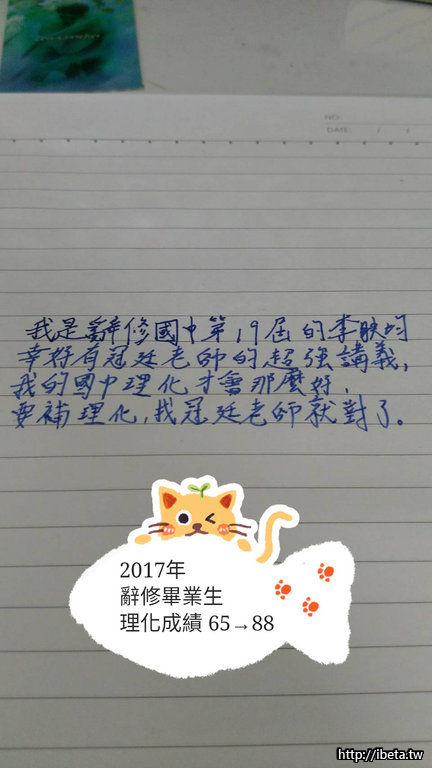 NO.
DATE / /
我是辭修國中第19屆的李映均
幸好有冠廷老師的超強講義,
我的國中理化才會那麼好,
要補理化,找冠廷老師就對了。
2017年
辭修畢業生
理化成績 65→88
http://ibeta.tw